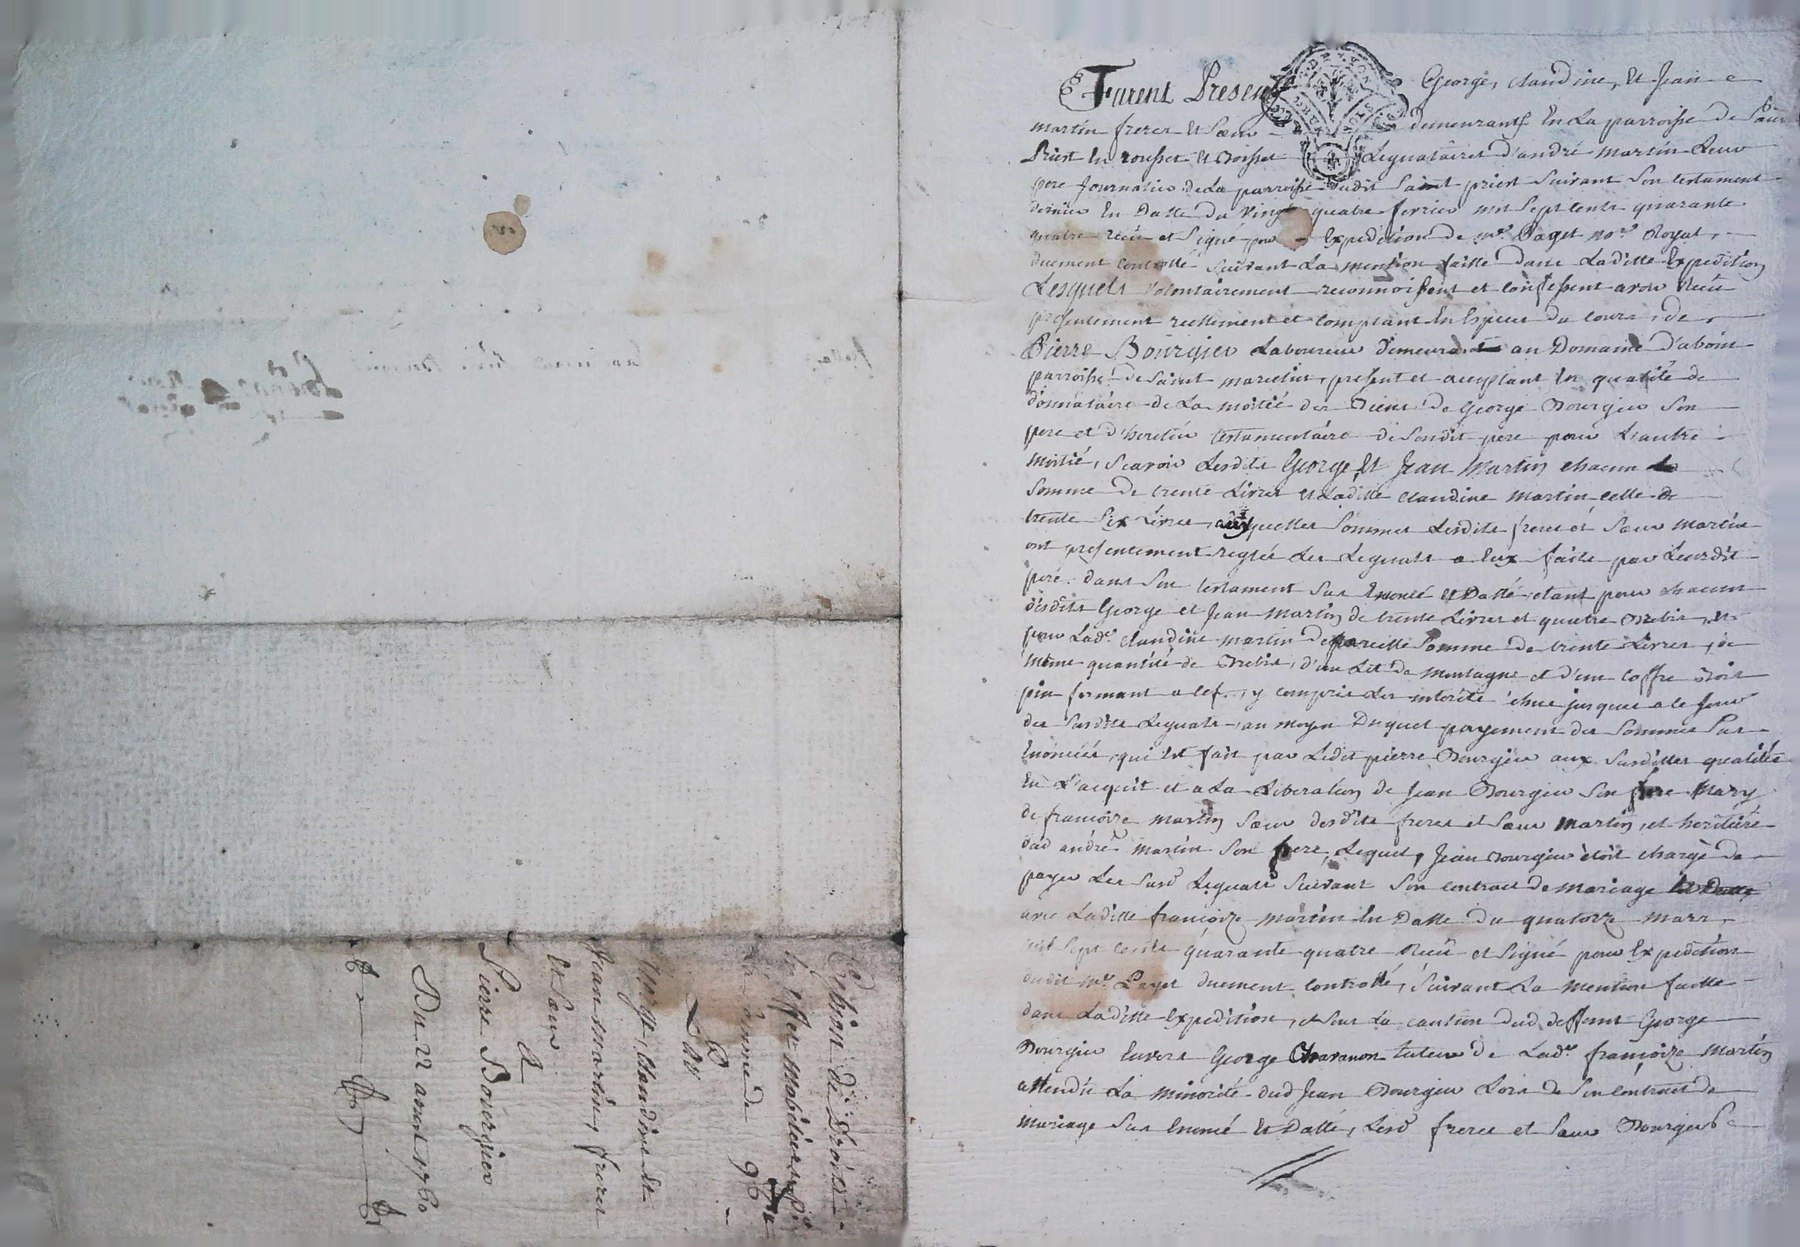 Furent Presents George, claudine, Et Jean
martin freres Et Sœur demeurants En La parroisse de Saint
Priest En rousset Et Boisset Leguataires d'andré martin Leur
pere Journalier de La parroisse dudit Saint priest Suivant Son testament
dernier En Datte du Vingt quatre fevrier mil Sept Cents quarante
quatre reçu et Signé pour Expedition de me Paget nore Royal,
duement Controllé Suivant La mention faitte dans Laditte Expedition
Lesquels Volontairement reconnoissent et confessent avoir Reçu
presentement reellement et comptant En Especes du cours, de
Pierre Bourgier Laboureur demeurant au Domaine d'aboin
parroisse de Saint marcelin, present et acceptant En qualité de
donnataire de La moitié des Biens de George Bourgier Son
pere et d'heritier testamentaire de Sondit pere pour L'autre
moitié, Scavoir Lesdits George Et Jean Martin chacun La
Somme de trente Livres Et Laditte claudine martin celle de
trente Six Livres, auxquelles Sommes Lesdits freres et Sœur Martin
ont presentement reglée Les Leguats a Eux faits par Leurdit
pere dans Son testament Sus Enoncé Et Datté, etant pour chacun
desdits George et Jean Martin de trente Livres et quatre Brebis, Et
pour Lade claudine martin de pareille Somme de trente Livres, de
même quantité de Brebis, d'un Lit de montagne et d'un Coffre Bois
pin fermant a clef, y compris Les interets échus jusques a ce Jour
des Susdits Leguats, au moyen Duquel payement des Sommes Sus
Enoncées, qui Est fait par Ledit pierre Bourgier aux Susdittes qualités
En L'acquit et a La Liberation de Jean Bourgier Son frere Mary
de françoise Martin Sœur desdits freres et Sœur Martin, et heritiere
dud andré Martin Son pere, Lequel Jean Bourgier étoit chargé de
payer Les Susd Leguats Suivant Son contract de Mariage
avec Laditte françoize Martin En Datte du quatorze Mars,
mil Sept Cents quarante quatre Reçu et Signé pour Expedition
dudit me Paget duement Controllé, Suivant La mention faitte
dans Laditte Expedition, et Sous La caution dud deffunt George
Bourgier Envers George Chavanon tuteur de Lade françoize Martin
attendu La minorité dud Jean Bourgier Lors de Son Contract de
mariage Sus Enoncé Et Datté, Lesd freres et Sœur Bourgier
Cession de Droits
En Effet Mobiliers pr
La Somme de 96
Par
George, Claudine Et
Jean Martin, freres
Et Sœur
A
Pierre Bourgier
Du 22 avril 1760